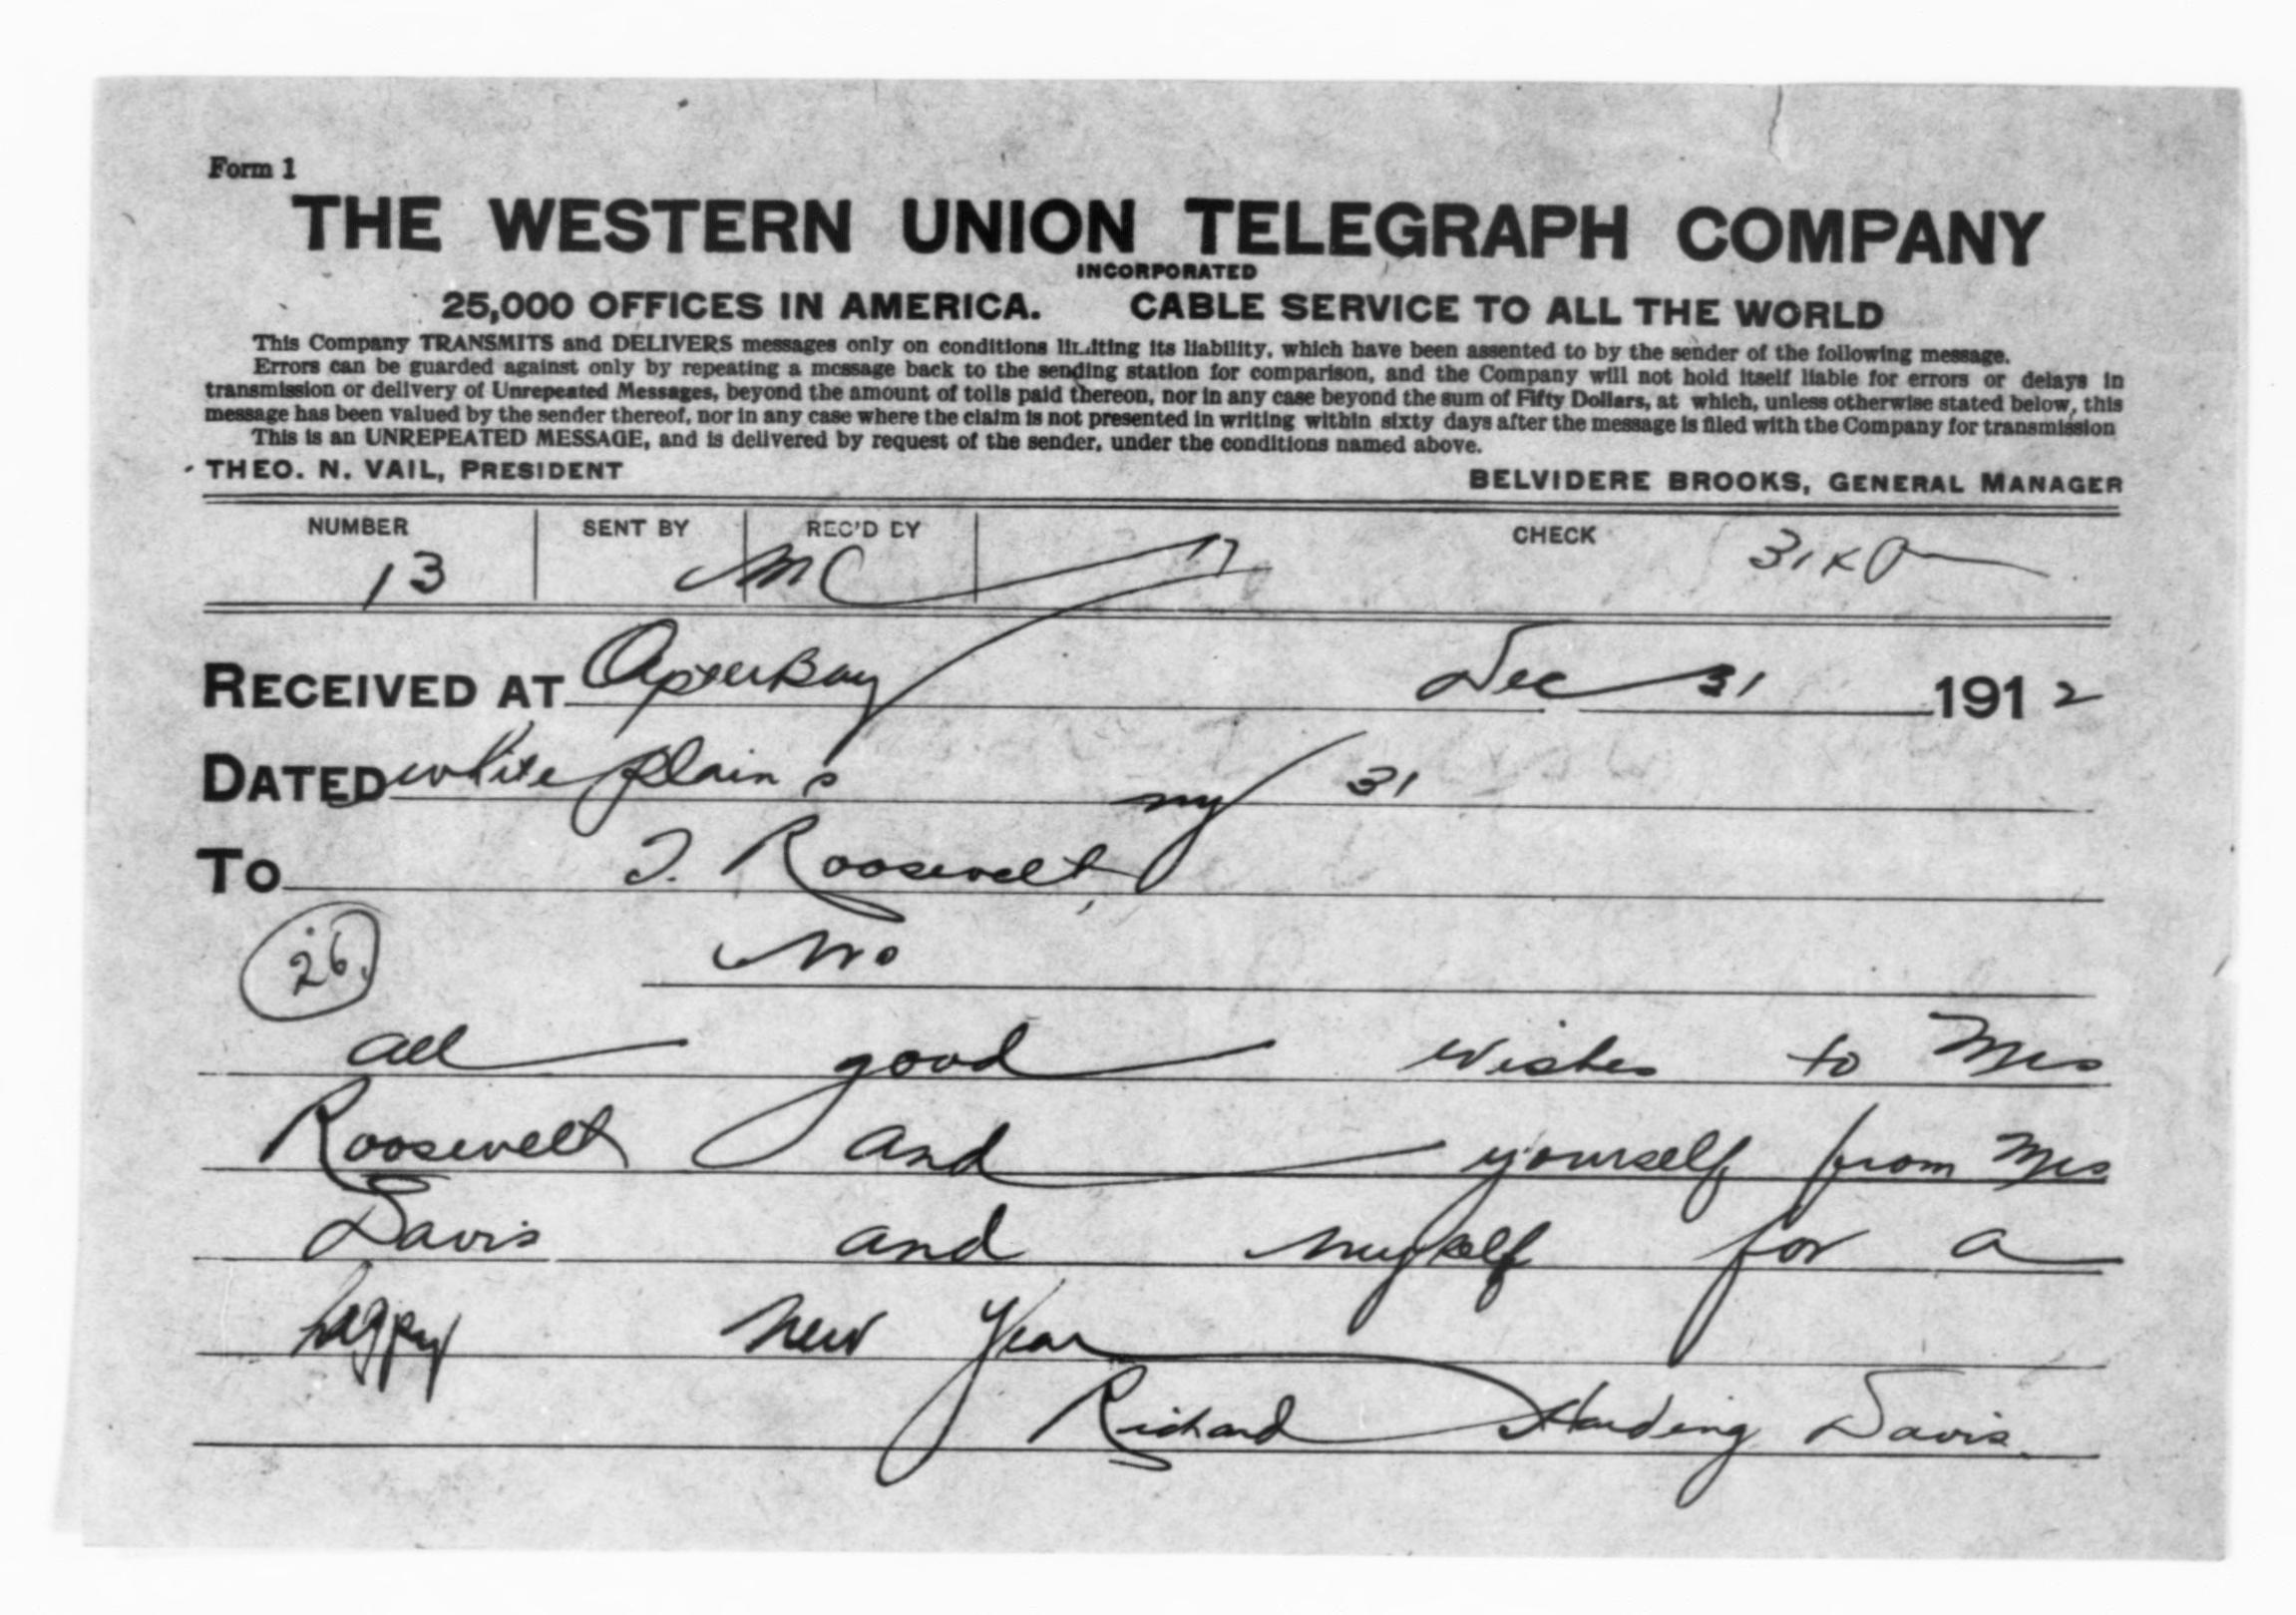 Form 1
THE WESTERN UNION TELEGRAPH COMPANY
INCORPORATED
25,000 OFFICES IN AMERICA. CABLE SERVICE TO ALL THE WORLD
This Company TRANSMITS and DELIVERS messages only on conditions limiting its liability, which have been assented to by the sender of the following message.
Errors can be guarded against only by repeating a message back to the sending station for comparison, and the Company will not hold itself liable for errors or delays in
transmission or delivery of Unrepeated Messages, beyond the amount of tolls paid thereon, nor in any case beyond the sum of Fifty Dollars, at which, unless otherwise stated below, this
message has been valued by the sender thereof, nor in any case where the claim is not presented in writing within sixty days after the message is filed with the Company for transmission
This is an UNREPEATED MESSAGE, and is delivered by request of the sender, under the conditions named above.
THEO. N. VAIL, PRESIDENT BELVIDERE BROOKS, GENERAL MANAGER
NUMBER SENT BY REC'D BY CHECK
13 MC 17
RECEIVED AT Oyster Bay Dec 31 1912
DATED white plains ny 31
TO T. Roosevelt
26.
all good wishes to Mrs
Roosevelt and yourself from Mrs
Davis and myself for a
happy New Year
Richard Harding Davis.